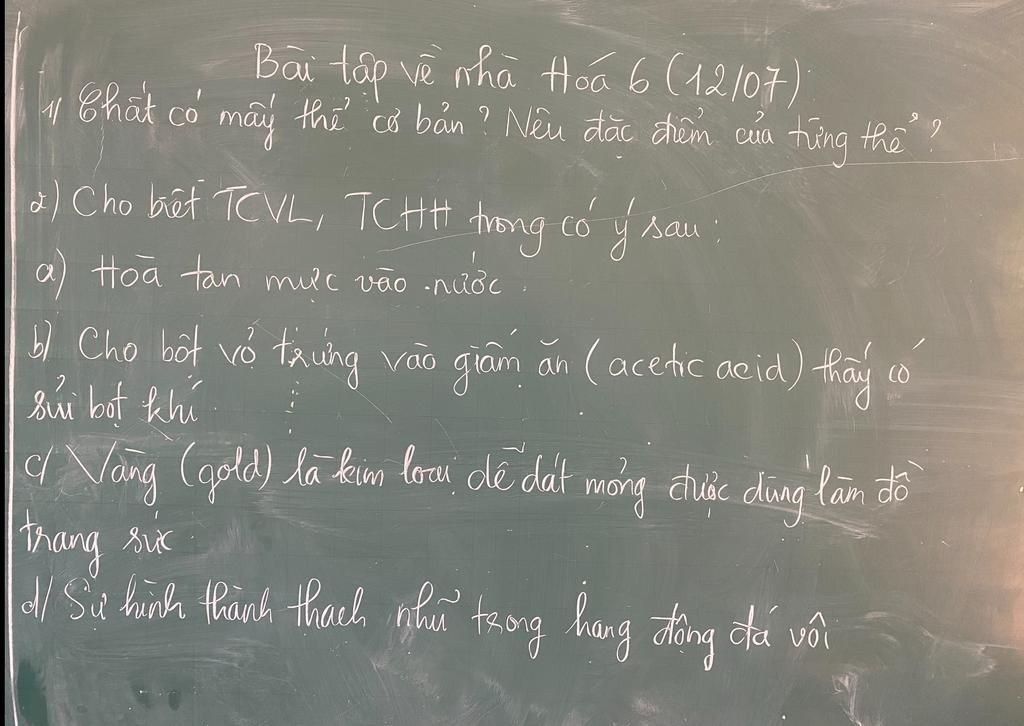 Bài tập về nhà Hoá 6 (12/07)
1/ Chất có mấy thể cơ bản? Nêu đặc điểm của từng thể?
2) Cho biết TCVL, TCHH trong có ý sau:
a) Hoà tan mực vào nước.
b) Cho bột vỏ trứng vào giấm ăn (acetic acid) thấy có
sủi bọt khí.
c/ Vàng (gold) là kim loại dễ dát mỏng được dùng làm đồ
trang sức.
d/ Sự hình thành thạch nhũ trong hang động đá vôi